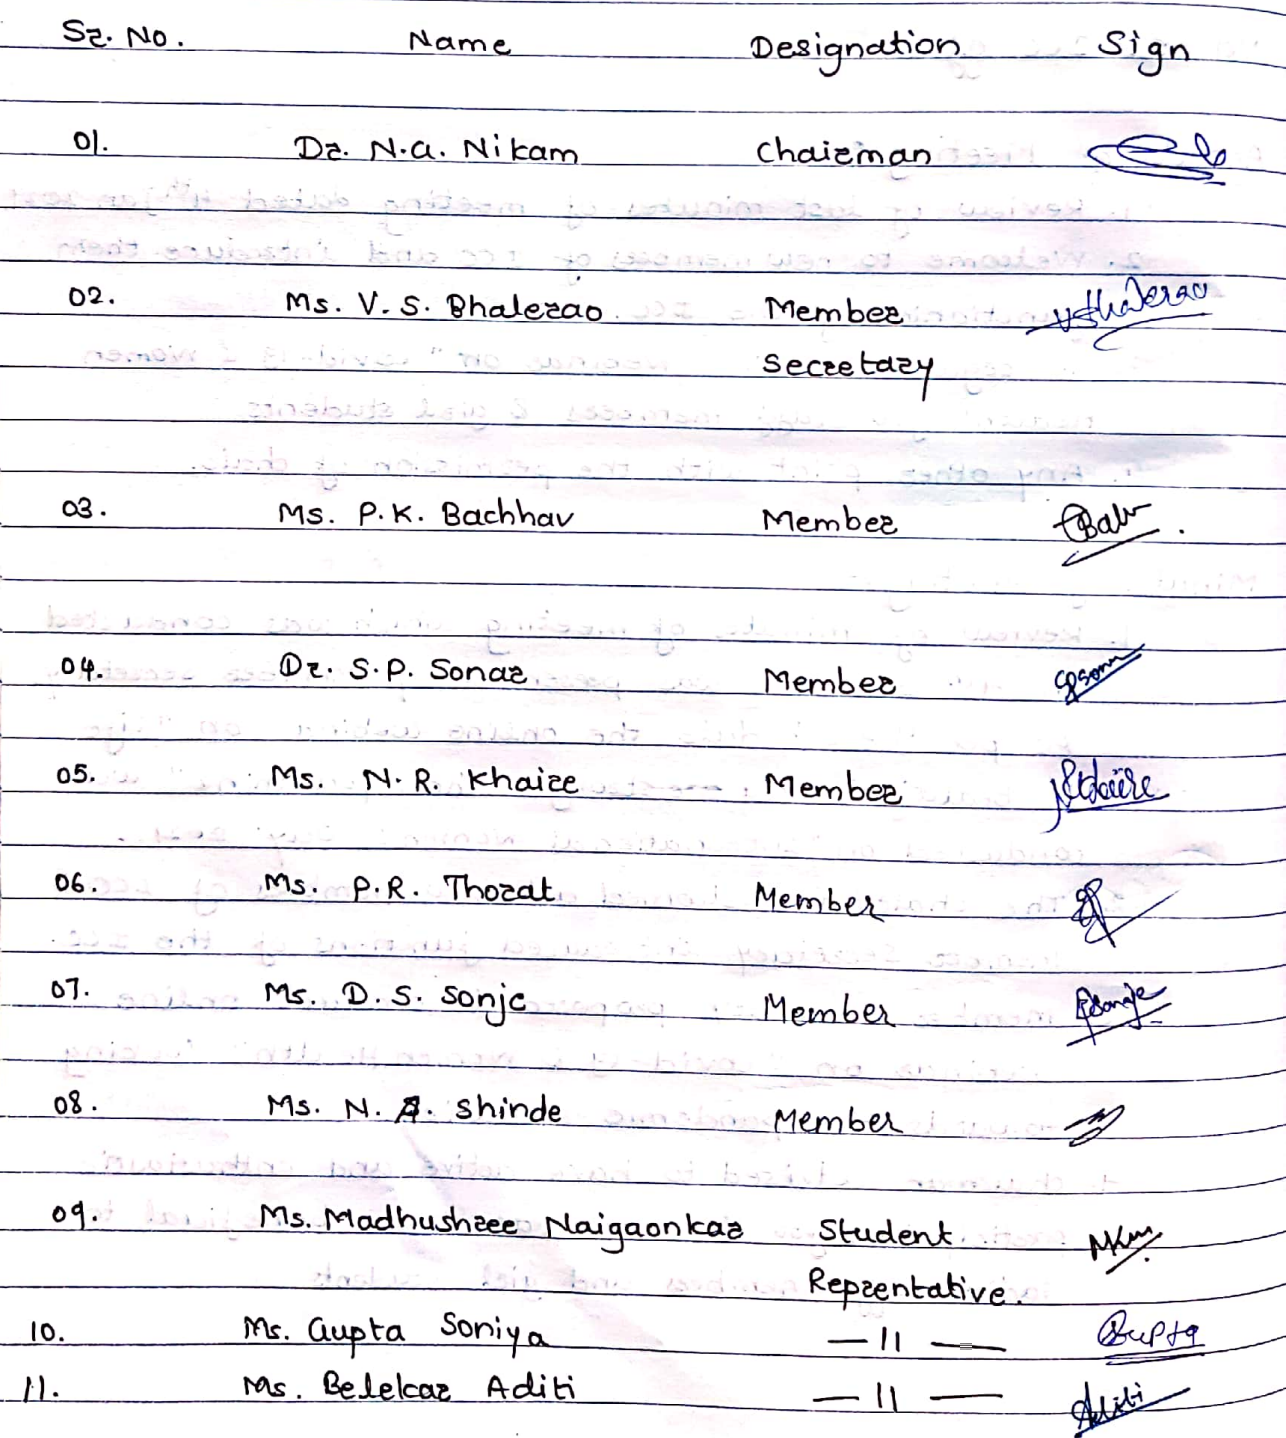 Sr. No. Name Designation Sign
01. Dr. N.A. Nikam Chairman
02. Ms. V. S. Bhalerao Member VSBhalerao
Secretary
03. Ms. P.K. Bachhav Member
04. Dr. S.P. Sonar Member
05. Ms. N. R. Khaire Member
06. Ms. P.R. Thorat Member
07. Ms. D. S. Sonje Member
08. Ms. N. A. Shinde Member
09. Ms. Madhushree Naigaonkar Student
Reprentative.
10. Ms. Gupta Soniya —11— Gupta
11. Ms. Belekar Aditi —11— Aditi